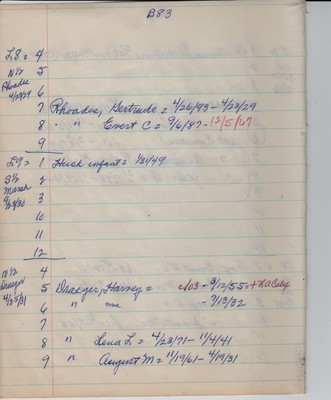 B83
L8 = 4
N 1/2 5
Rhoades 6
4/23/29 7 Rhoades, Gertrude = 4/26/93 - 4/22/29
8 " " Evert C = 9/6/87 - 12/5/67
9
L9 = 1 Husk infant = 1/21/49
S 1/2 2
3
10
11
12
N 1/2 4
Draeger 5 Draeger, Harvey = c/03 - 3/12/55 =
4/25/31 6 " - 7/13/32
7
8 " Lena L = 4/23/71 - 11/4/41
9 " August M = 11/19/61 - 4/19/31